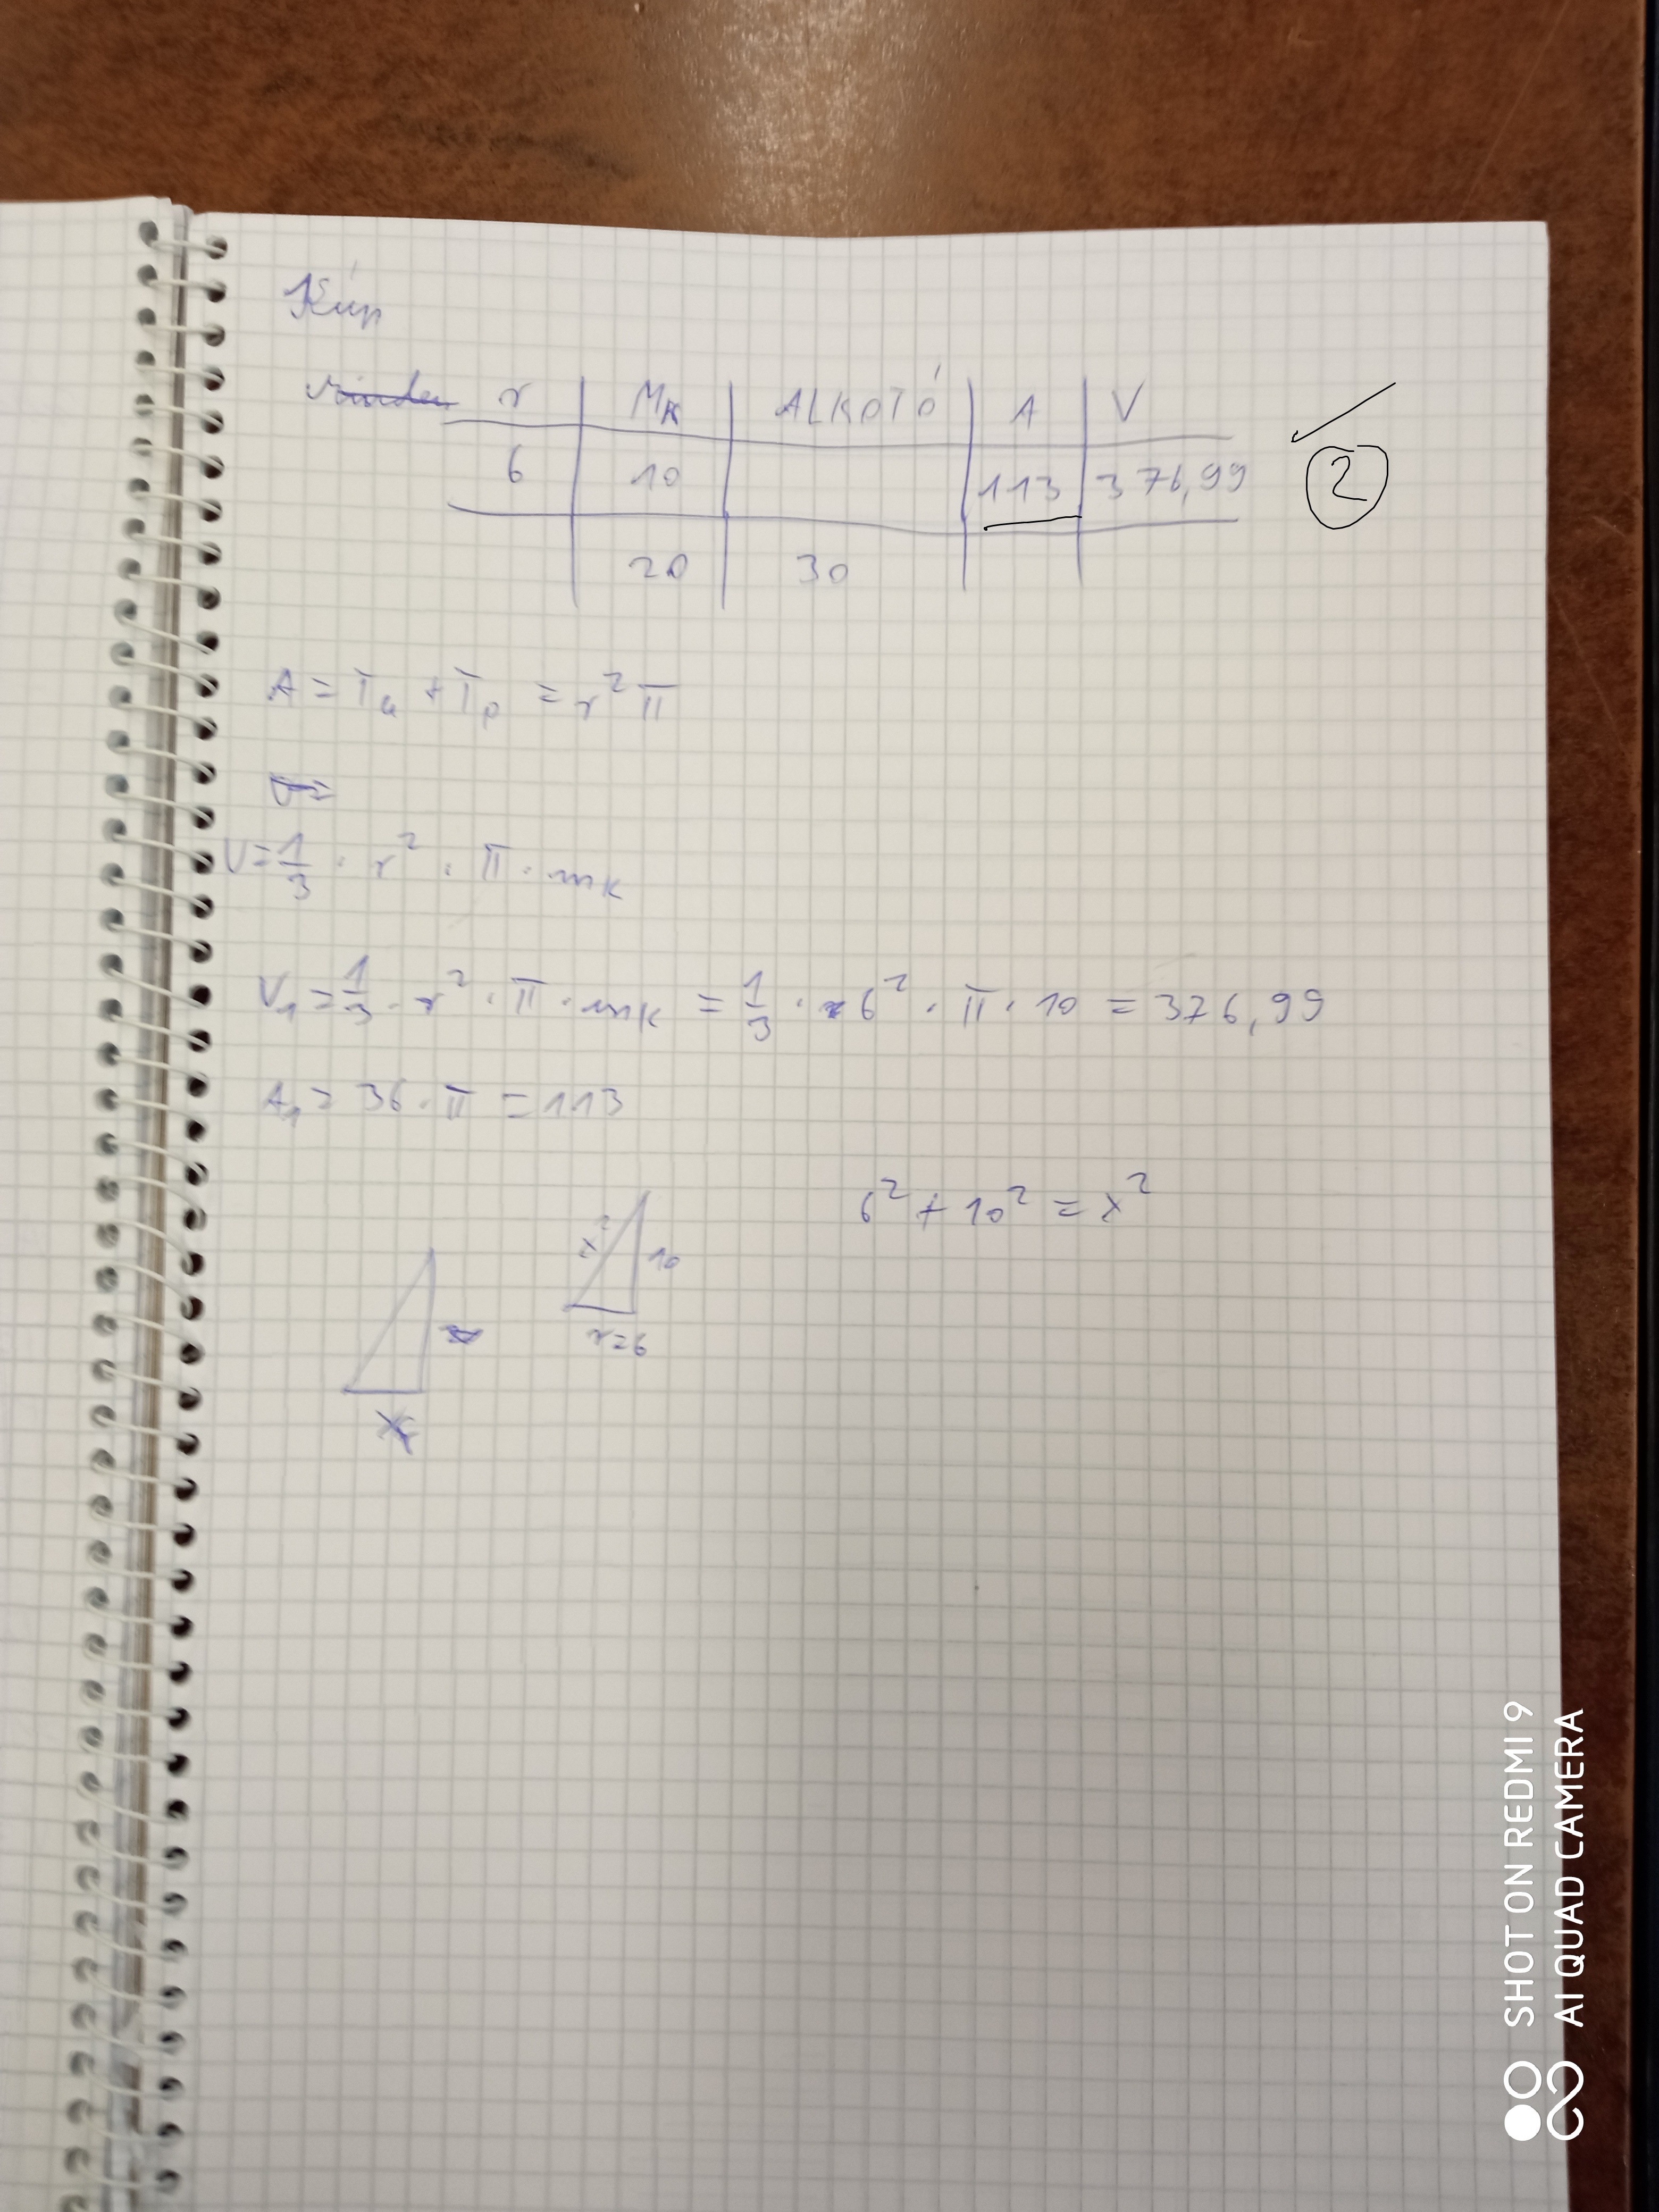 Kúp
r | Mk | ALKOTÓ | A | V
6 | 10 | | 113 | 376,99
2
20 | 30
A = Ta + Tp = r² π
V =
V = 1/3 · r² · π · mk
V₁ = 1/3 · r² · π · mk = 1/3 · 6² · π · 10 = 376,99
A₁ = 36 · π = 113
6² + 10² = x²
x? 10
r=6
SHOT ON REDMI 9
AI QUAD CAMERA